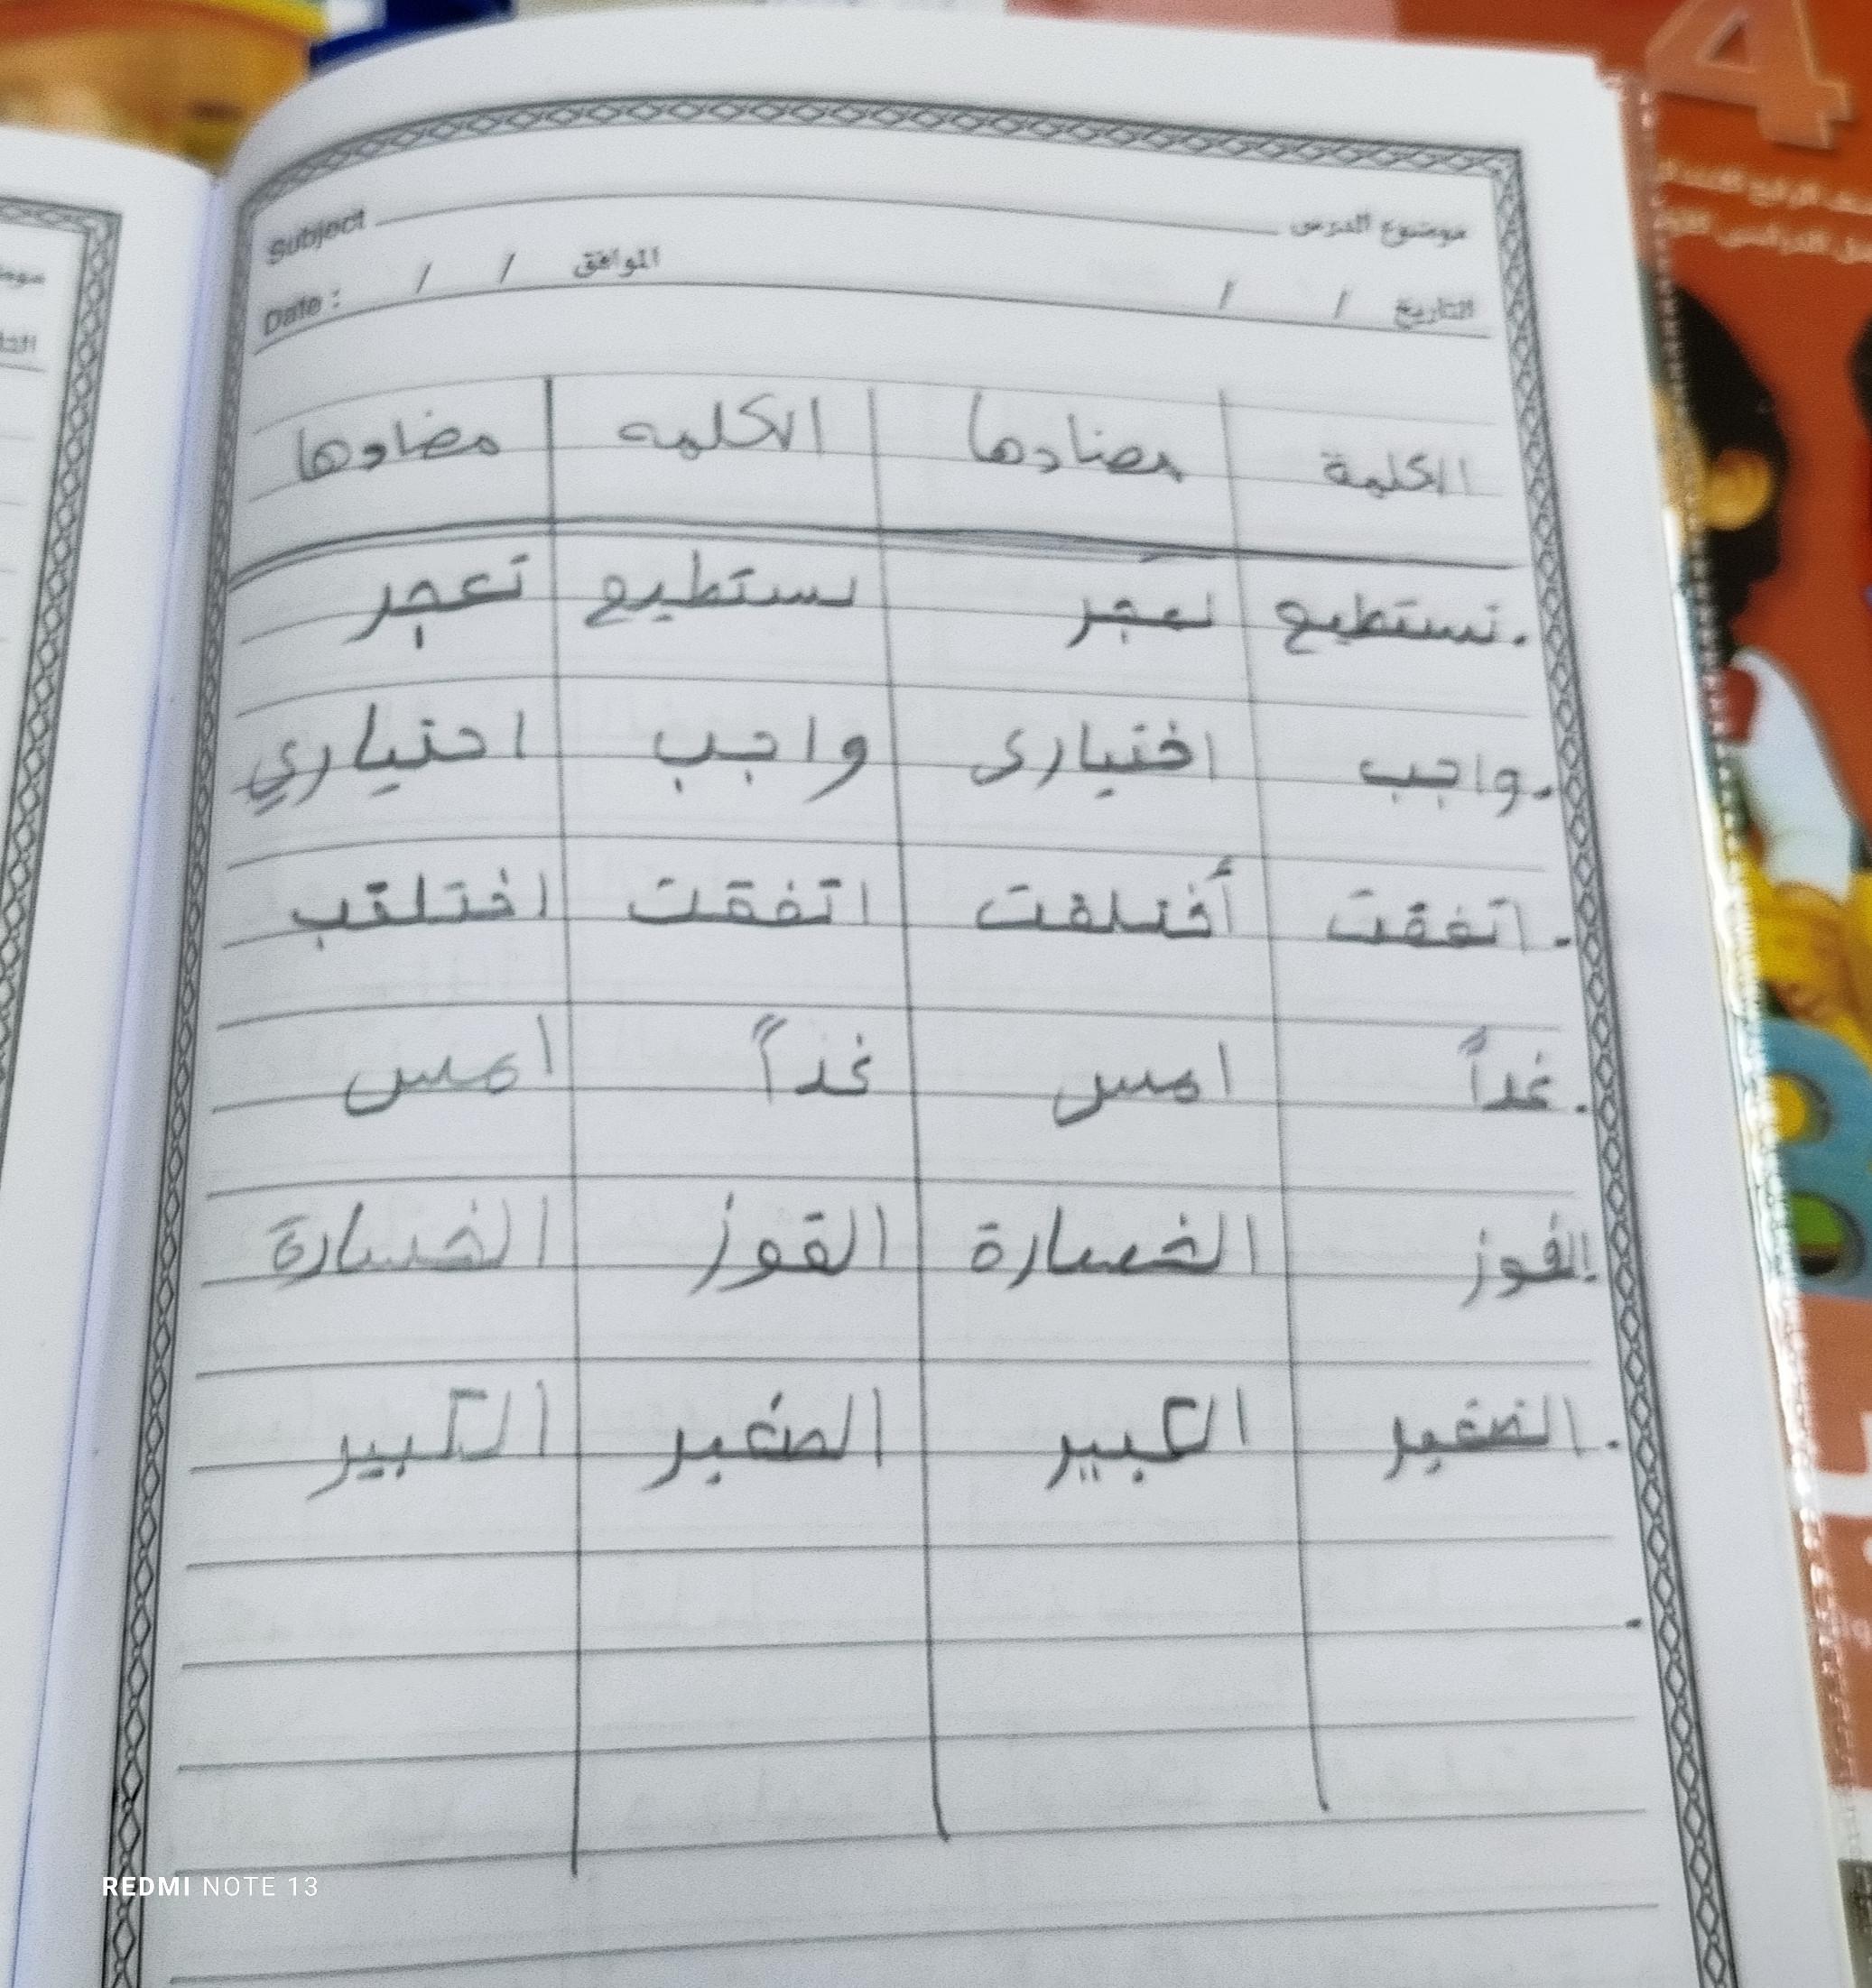 4
موضوع الدرس Subject
التاريخ / / الموافق / / Date :
الكلمة مضادها الكلمه مضادها
. تستطيع تعجر تستطيع تعجر
. واجب اختيارى واجب احتياري
. اتفقت أختلفت اتفقت اختلقب
. غداً امس غداً امس
. الفوز الخسارة القوز الخسارة
. الصغير الكبير الصغير الكبير
.
REDMI NOTE 13